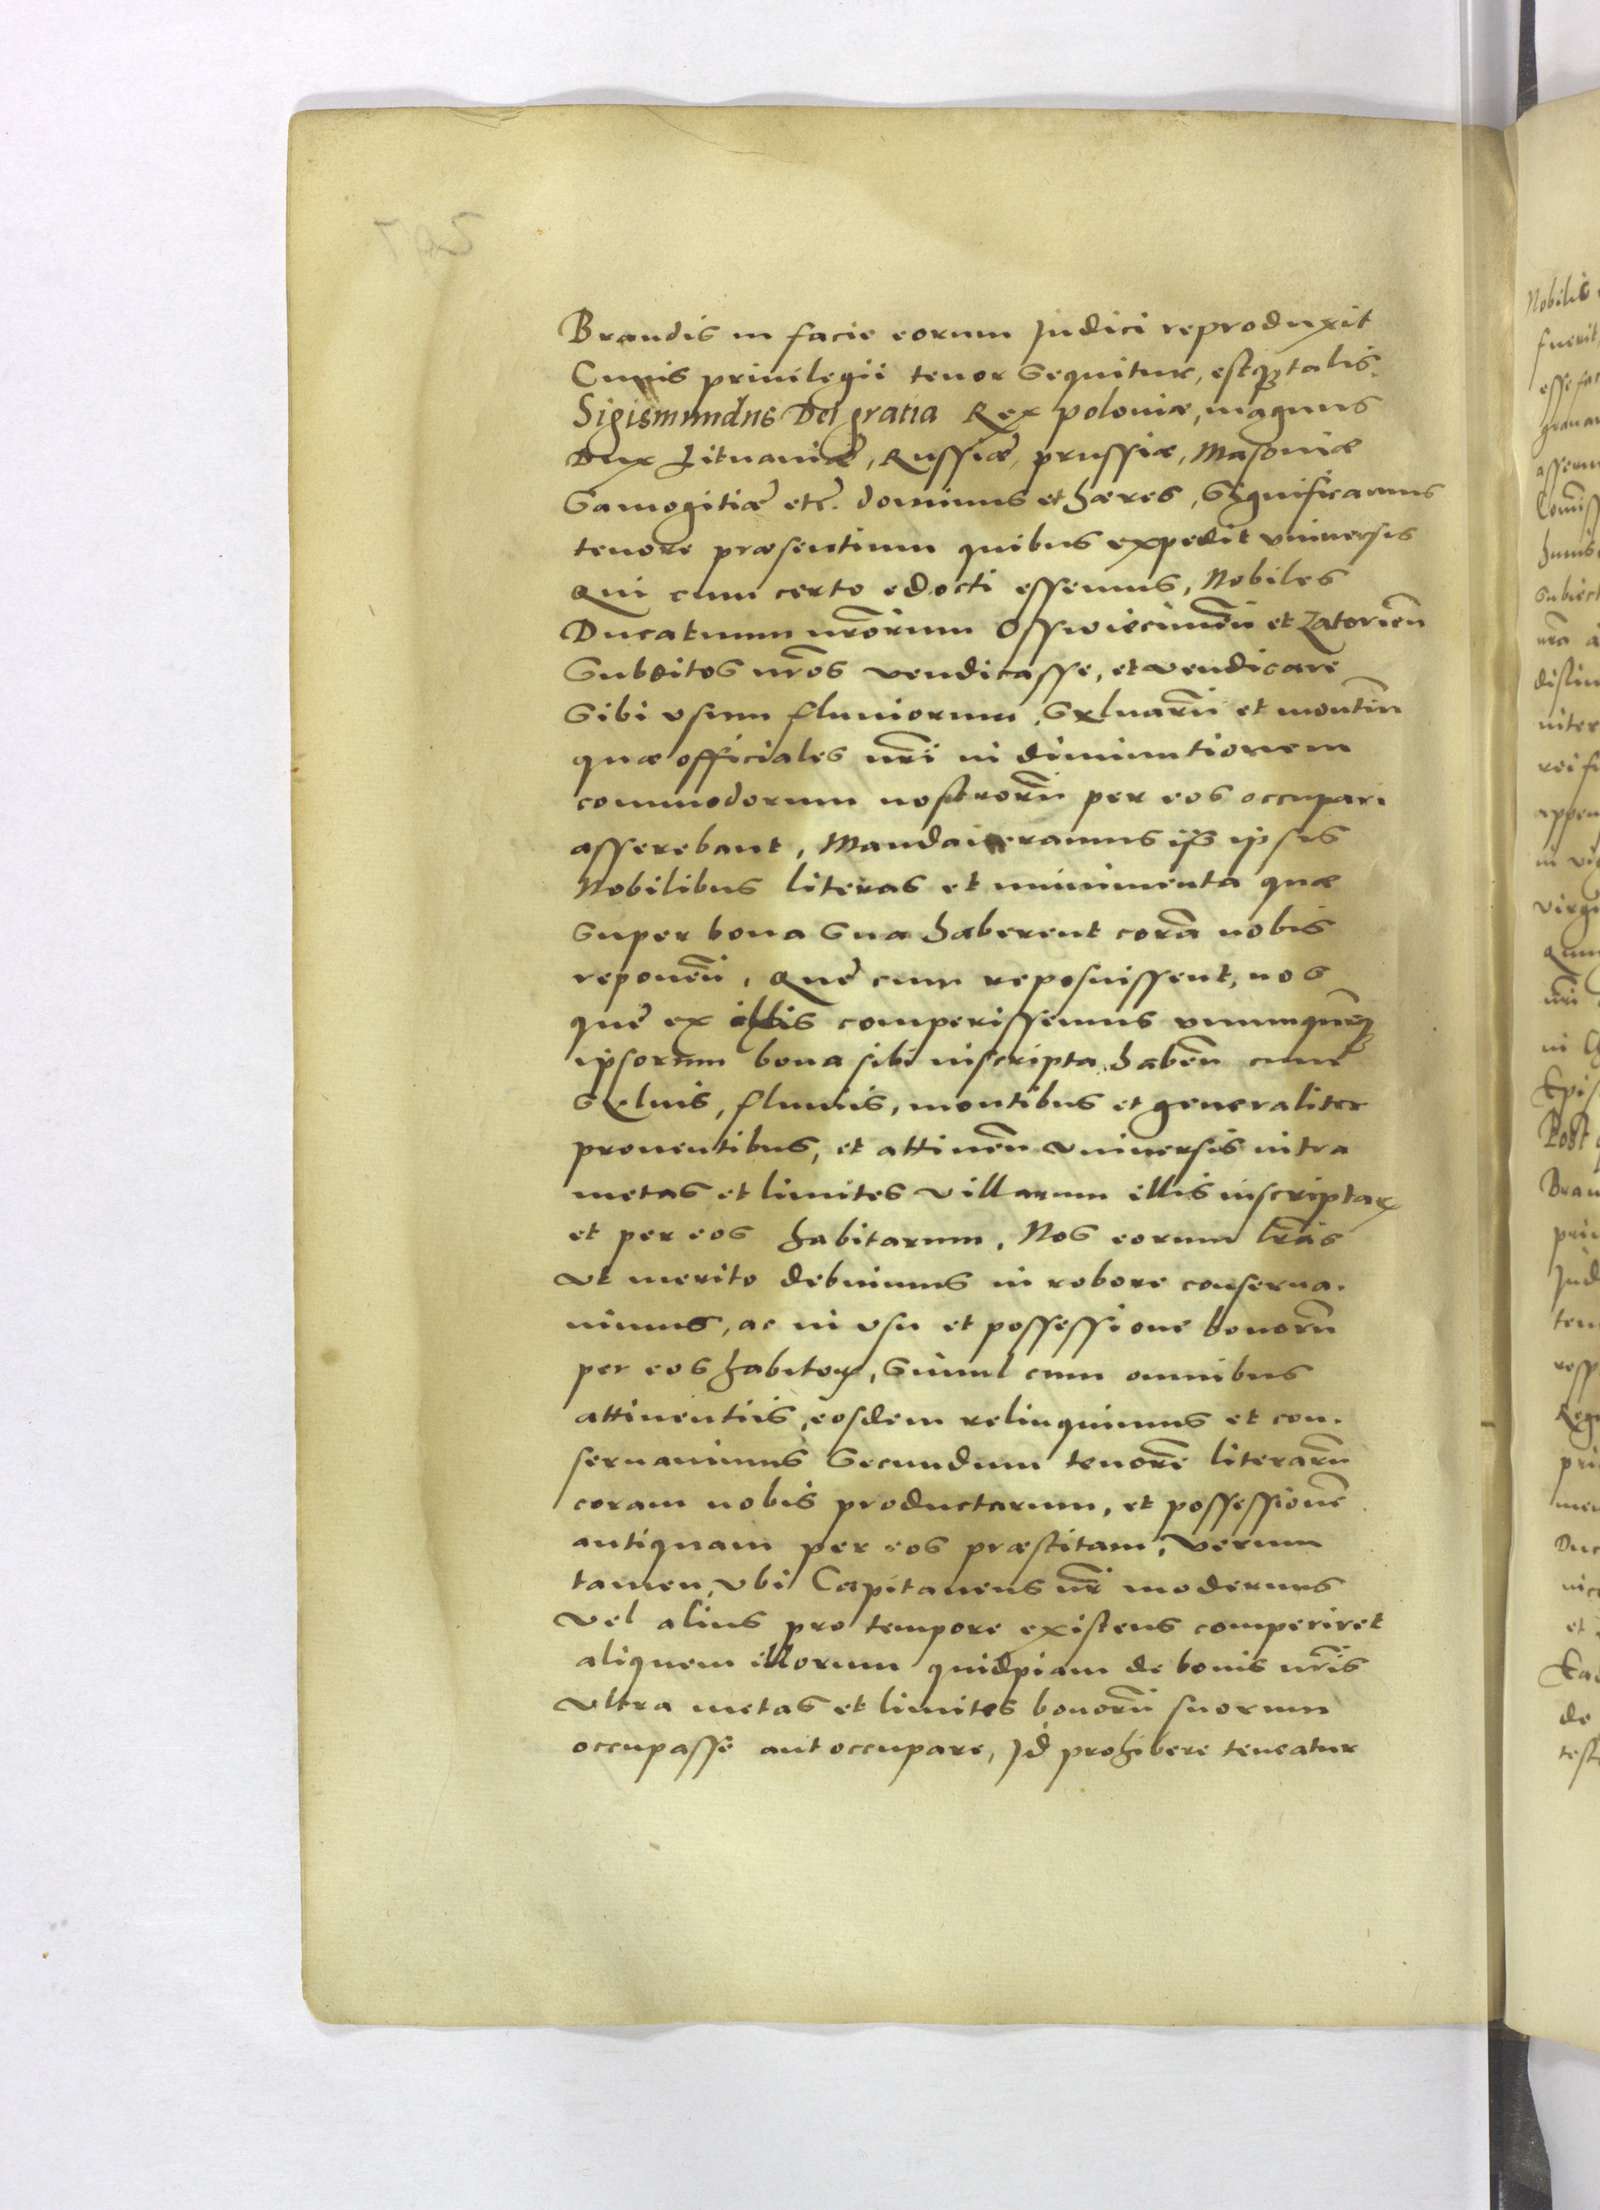 Brandis in facie eorum Judici reproduxit
Cuius priuilegii tenor sequitur, estq3 talis.
Sigismundus Dei gratia Rex poloniæ, magnus
Dux Lituaniæ, Russiæ, prussiæ, Masouiæ
Samogitiæ etc̃. dominus et hæres, Significamus
tenore præsentium quibus expedit vniuersis
Qui cum certo edocti essemus, Nobiles
Ducatuum nr̃orum Osswiecimeñ et Zatorieñ
Subditos nr̃os vendicasse, et vendicare
Sibi vsum fluuiorum, Syluarũ et montiũ
quæ officiales nr̃i in diminutionem
commodorum nostrorũ per eos occupari
asserebant, Mandaueramus ipsis
Nobilibus literas et munimenta quæ
super bona sua haberent corã nobis
reponeñ, Quę cum reposuissent, nos
quę ex illis comperissemus vnumquẽq3
ipsorum bona sibi inscripta habeñ cum
Syluis, fluuiis, montibus et generaliter
prouentibus, et attineñ vniuersis intra
metas et limites villarum illis inscriptar
et per eos habitarum, Nos eorum lr̃as
vt merito debuimus in robore conserua.
uimus, ac in vsu et possessione bonorũ
per eos habitor, Simul cum omnibus
attinentiis, eosdem relinquimus et con.
seruauimus Secundum tenorẽ literarũ
coram nobis productarum, et possessionẽ
antiquam per eos præstitam, Verum
tamen, vbi Capitaneus nr̃ modernus
vel alius pro tempore existens comperiret
aliquem illorum quidpiam de bonis nr̃is
vltra metas et limites bonorũ suorum
occupasse aut occupare, Jd prohibere teneatur